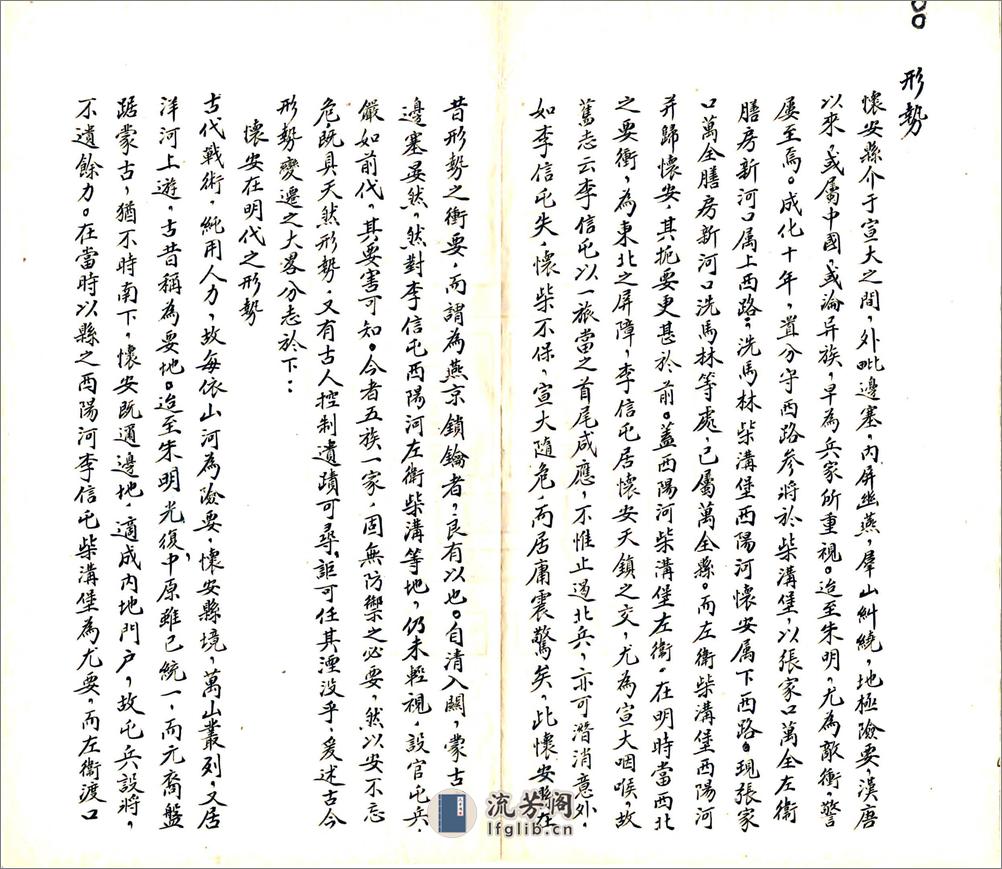 形勢
懷安縣介于宣大之間，外毗邊塞，內屏幽燕，羣山糾繞，地極險要，漢唐
以來，或屬中國，或淪异族，早為兵家所重視。迨至朱明，尤為敵衝，警
屡至焉。成化十年，置分守西路参將於柴溝堡，以張家口萬全左衛
膳房新河口属上西路，洗馬林柴溝堡西陽河懷安属下西路。現張家
口萬全膳房新河口洗馬林等處，已屬萬全縣。而左衛柴溝堡西陽河
并歸懷安，其扼要更甚於前。蓋西陽河柴溝堡左衛。在明時當西北
之要衝，為東北之屏障，李信屯居懷安天鎮之交，尤為宣大咽喉，故
舊志云李信屯以一旅當之首尾咸應，不惟止遏北兵，亦可潛消意外，
如李信屯失，懷柴不保，宣大隨危，而居庸震驚矣，此懷安縣在
昔形勢之衝要，而謂為燕京鎖鑰者，良有以也。自清入關，蒙古
邊塞晏然，然對李信屯西陽河左衛柴溝等地，仍未輕視，設官屯兵，
嚴如前代，其要害可知。今者五族一家，固無防禦之必要，然以安不忘
危，既具天然形勢，又有古人控制遺蹟可尋，詎可任其湮没乎，爰述古今
形勢變遷之大畧分志於下：
懷安在明代之形勢
古代戰術，純用人力，故每依山河為險要，懷安縣境，萬山叢列，又居
洋河上遊，古昔稱為要地。迨至朱明光復，中原雖已統一，而元裔盤
踞蒙古，猶不時南下，懷安既通邊地，適成內地門户，故屯兵設將，
不遺餘力。在當時以縣之西陽河李信屯柴溝堡為尤要，而左衛渡口
流芳阁
lfglib.cn